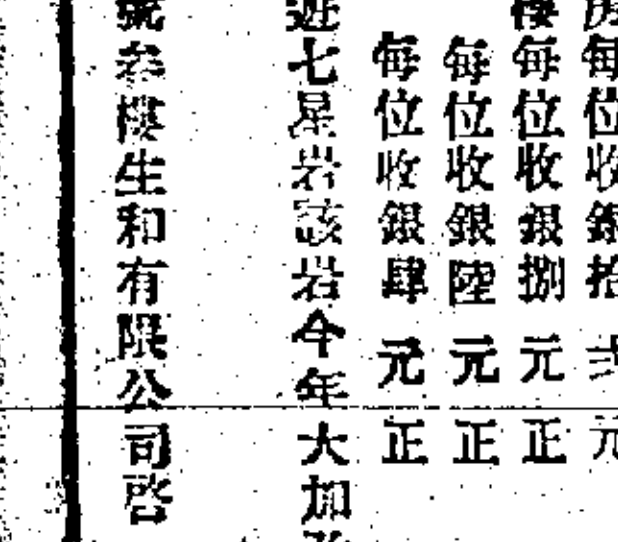 房每位收銀拾弍元
樓每位收銀捌元正
每位收銀陸元正
每位收銀肆元正
遊七星岩該岩今年大加
號叁樓生和有限公司啓